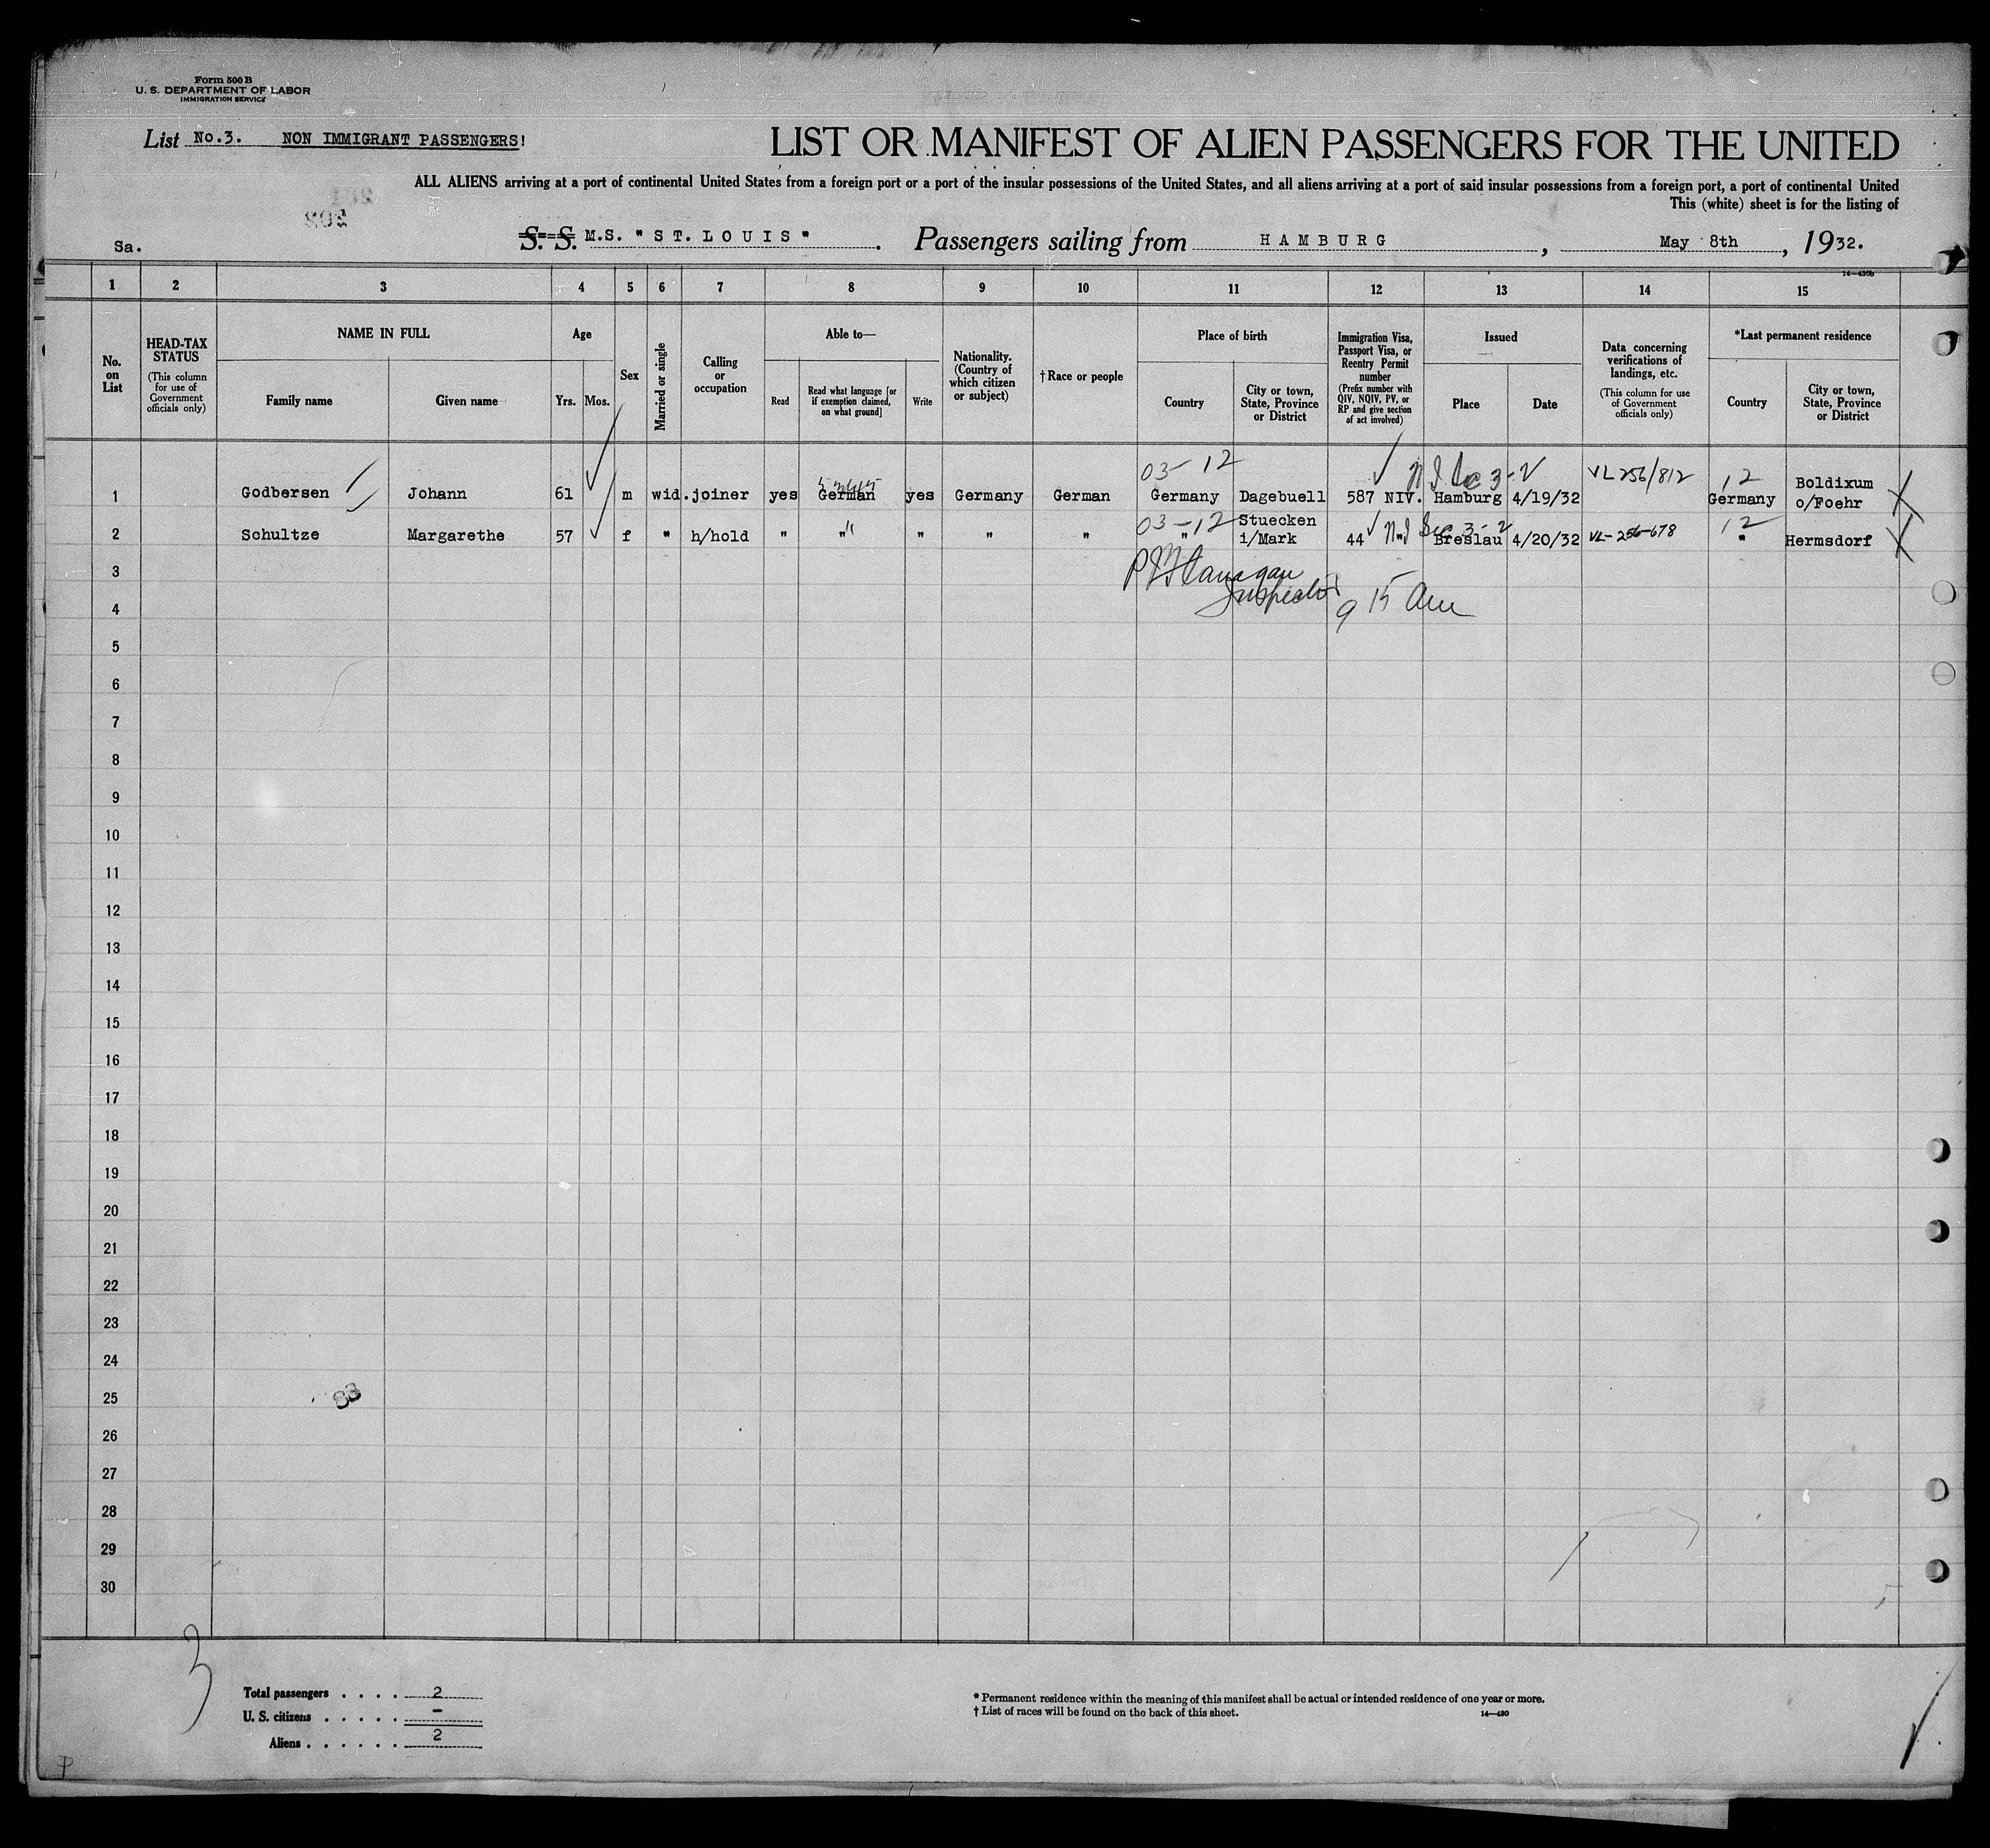 Form 500 B
U. S. DEPARTMENT OF LABOR
IMMIGRATION SERVICE
List No.3. NON IMMIGRANT PASSENGERS!
LIST OR MANIFEST OF ALIEN PASSENGERS FOR THE UNITED
ALL ALIENS arriving at a port of continental United States from a foreign port or a port of the insular possessions of the United States, and all aliens arriving at a port of said insular possessions from a foreign port, a port of continental United
This (white) sheet is for the listing of
Sa.
S. S. M.S. "ST.LOUIS". Passengers sailing from HAMBURG, May 8th, 1932.
14—430b
1 2 3 4 5 6 7 8 9 10 11 12 13 14 15
No. on List
HEAD-TAX STATUS (This column for use of Government officials only)
NAME IN FULL
Family name
Given name
Age
Yrs.
Mos.
Sex
Married or single
Calling or occupation
Able to—
Read
Read what language [or if exemption claimed, on what ground]
Write
Nationality. (Country of which citizen or subject)
†Race or people
Place of birth
Country
City or town, State, Province or District
Immigration Visa, Passport Visa, or Reentry Permit number (Prefix number with QIV, NQIV, PV, or RP and give section of act involved)
Issued
Place
Date
Data concerning verifications of landings, etc. (This column for use of Government officials only)
*Last permanent residence
Country
City or town, State, Province or District
03-12 3-2 VL256/812 12
1 Godbersen Johann 61 m wid. joiner yes German yes Germany German Germany Dagebuell 587 NIV. Hamburg 4/19/32 Germany Boldixum o/Foehr
03-12 Sec 3-2 12
2 Schultze Margarethe 57 f " h/hold " " " " " " Stuecken i/Mark 44 " Breslau 4/20/32 VL-256-678 " Hermsdorf
3
Flanagan
Inspector
9 15 am
4
5
6
7
8
9
10
11
12
13
14
15
16
17
18
19
20
21
22
23
24
25
83
26
27
28
29
30
3
Total passengers . . . . 2
U. S. citizens . . . . . -
Aliens . . . . . . 2
* Permanent residence within the meaning of this manifest shall be actual or intended residence of one year or more.
† List of races will be found on the back of this sheet.
14—430